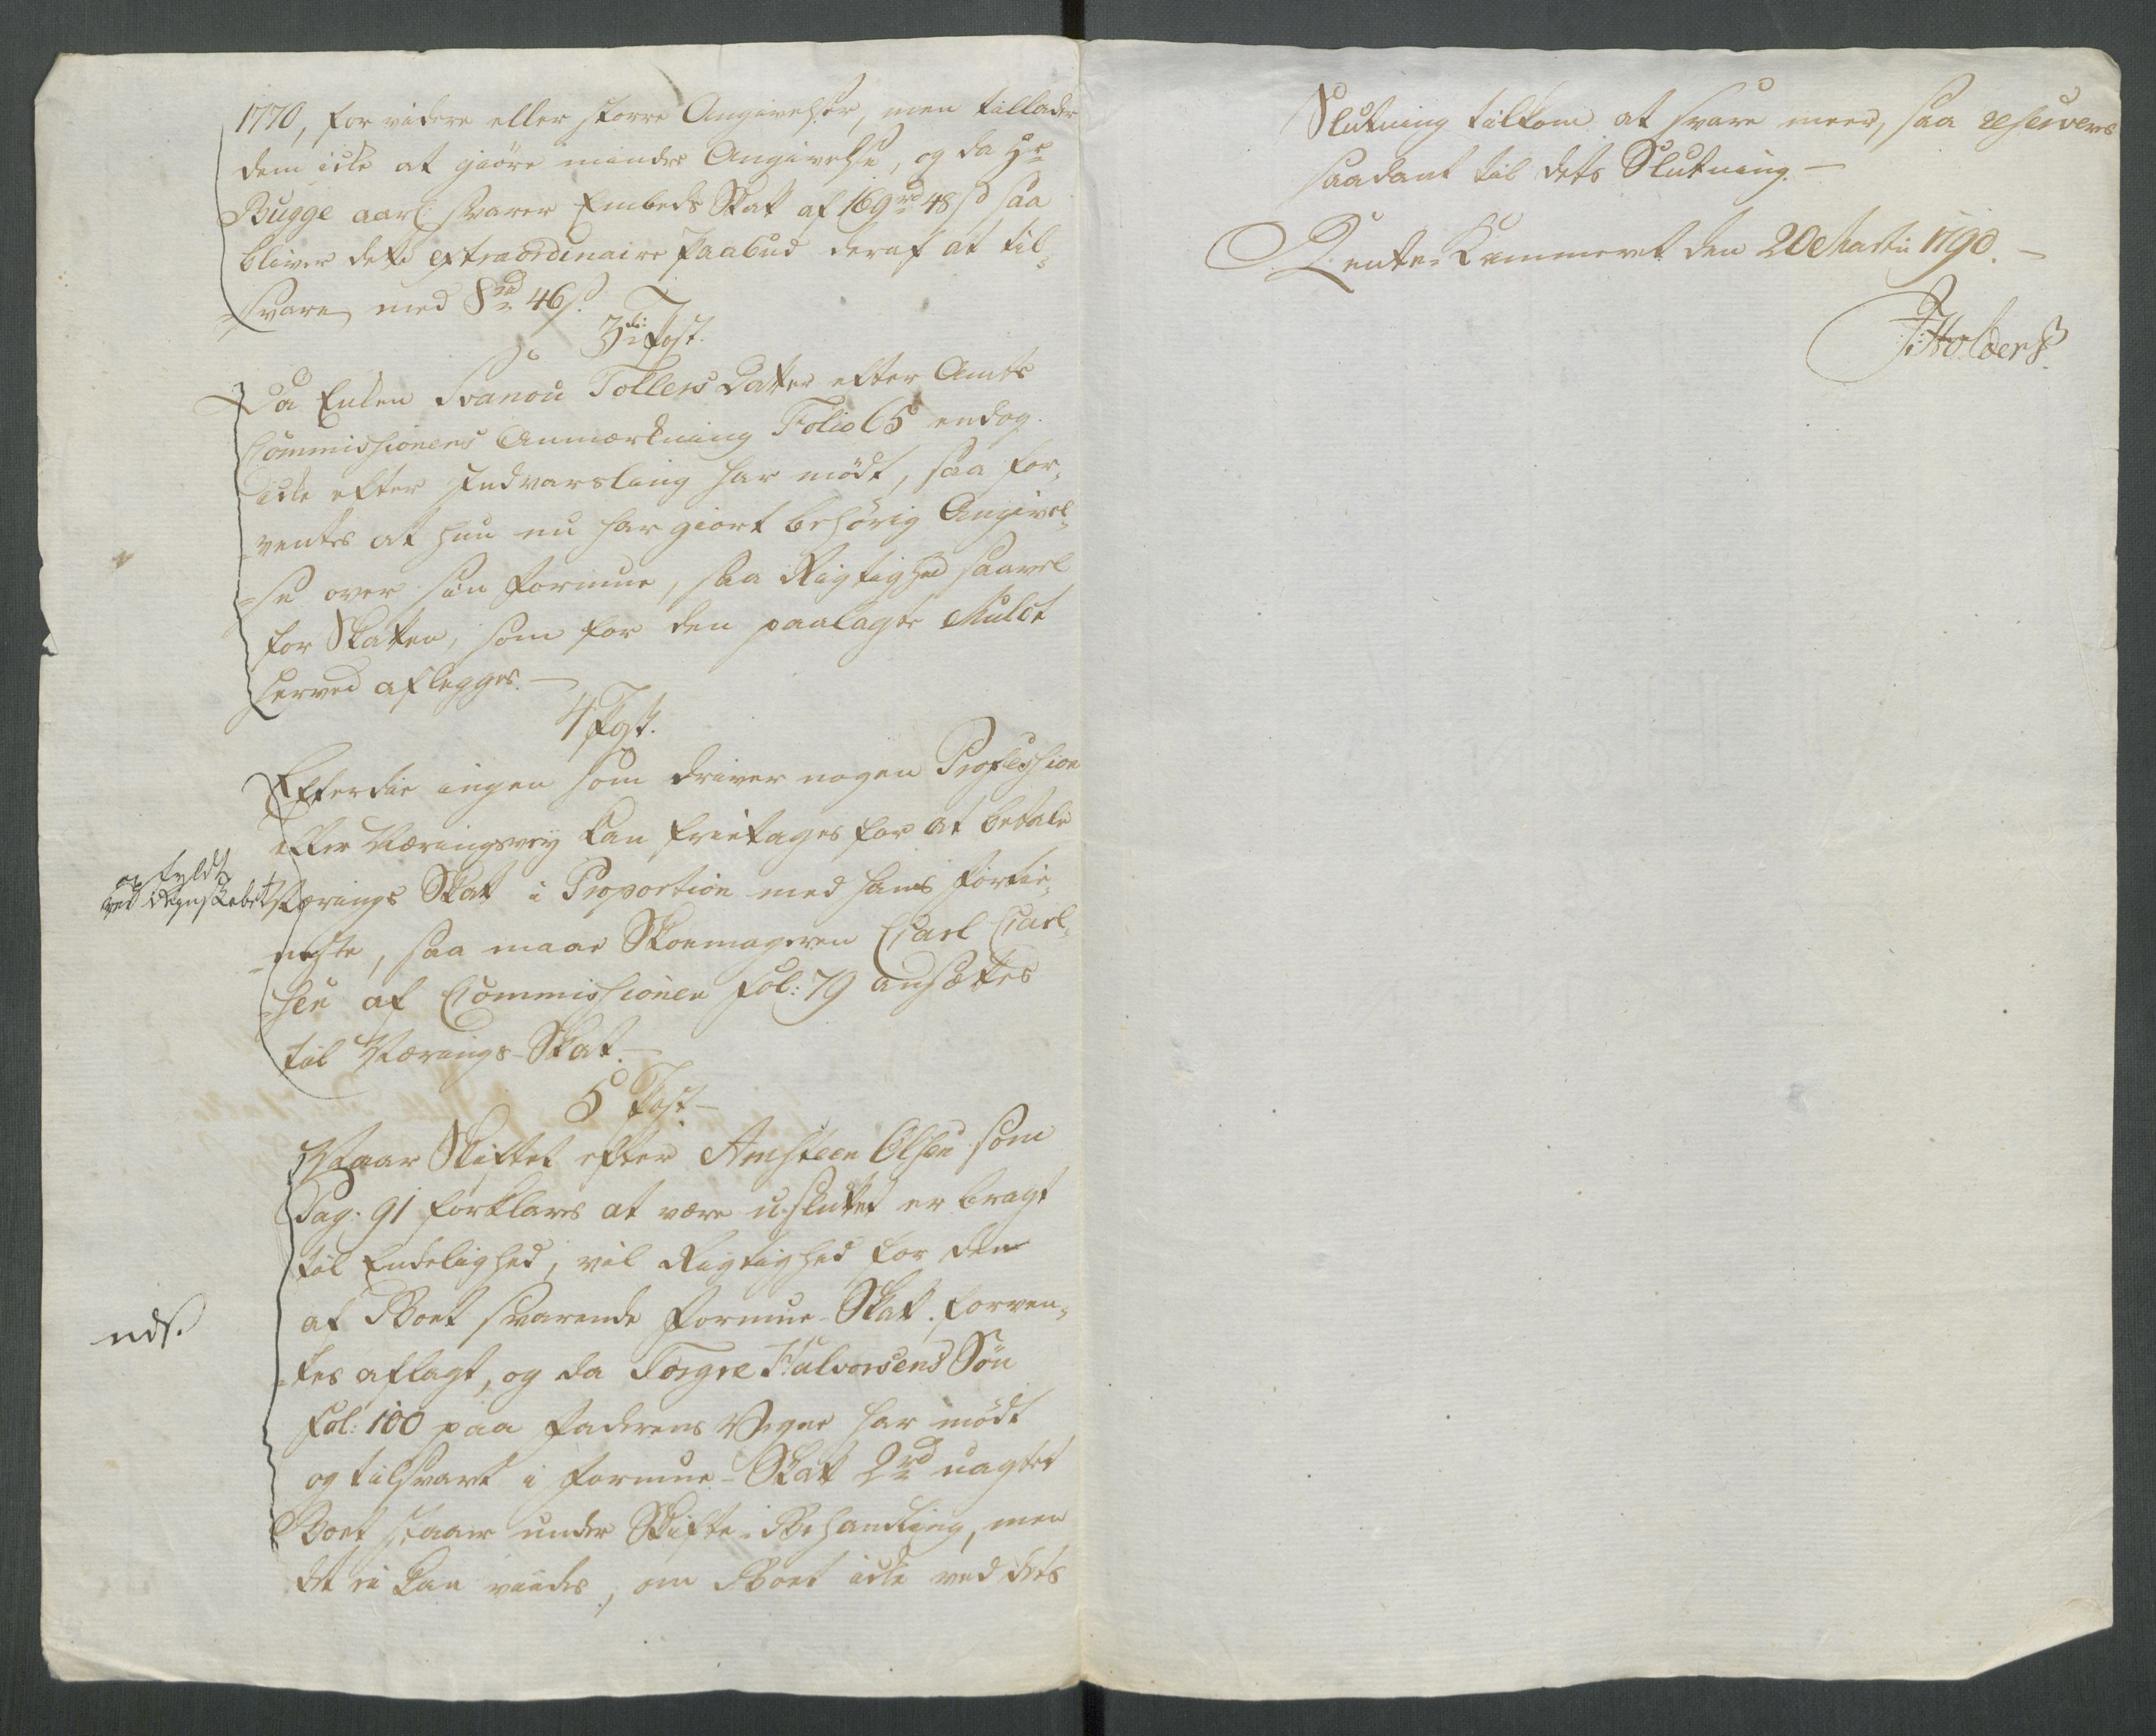 1770, for videre eller større Angivelser, men tillader
dem icke at giöre mindre Angivelse, og da Hr
Bugge aarl: svarer Embeds Skat af 169rd 48s saa
bliver dette extraordinaire Paabud deraf at til-
svare med 8rd 46s.
3die Post.
Da Enken Svanou Tollers Datter efter Amts
Commissionens Anmærkning Folio 65 endog
icke efter Indvarsling har mödt, saa for-
ventes at hun nu har giort behörig Angivel-
-se over sin Formue, saa Rigtighed saavel
for Skatten, som for den paalagte Mulct
herved aflegges. —
4 Post.
Efterdie ingen som driver nogen Profession
eller Næringsvey kan frietages for at betale
Nærings Skat i Proportion med hans Fortie-
-neste, saa maae Skoemageren Carl Carl-
-sen af Commissionen Fol: 79 ansættes
til Nærings-Skat. —
opfyldt
ved Regnskabet
5 Post —
Naar Skiftet efter Amsteen Olsen som
Pag: 91 forklares at være usluttet er bragt
til Endelighed, vil Rigtighed for den
af Boet svarende Formue-Skat forven-
-tes aflagt, og da Torgre Halvorsens Sön
Fol: 100 paa Faderens Vegne har mödt
og tilsvart i Formue-Skat 2rd uagtet
Boet staaer under Skifte-Behandling, men
det ei kan viides, om Boet icke ved dets
nds.
Slutning tilkom at svare meer, saa reserveres
saadant til dets Slutning. —
Rente-Kammeret den 20 Martii 1790. —
J. Holders